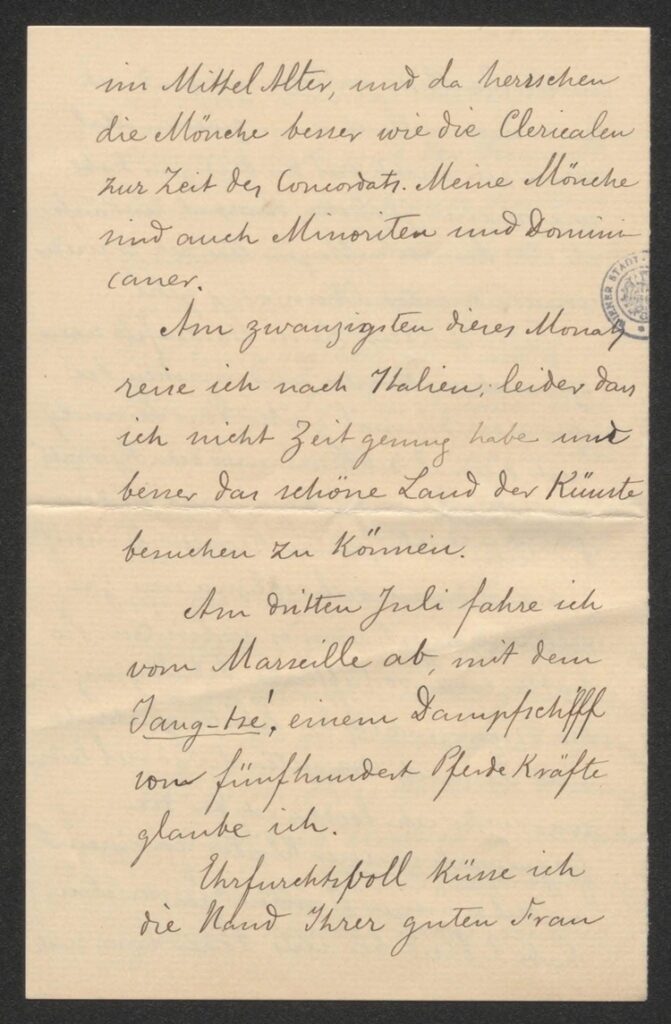 im MittelAlter, und da herrschen
die Mönche besser wie die Clericalen
zur Zeit des Concordats. Meine Mönche
sind auch Minoriten und Domini-
caner.
Am zwanzigsten dieses Monats
WIENER STADT-
reise ich nach Italien, leider dass
ich nicht Zeit genung habe und
besser das schöne Land der Künste
besuchen zu können.
Am dritten Juli fahre ich
vom Marseille ab, mit dem
Jang-tsé, einem Dampfschifff
von fünfhundert PferdeKräfte
glaube ich.
Ehrfurchtsvoll Küsse ich
die Hand Ihrer guten Frau